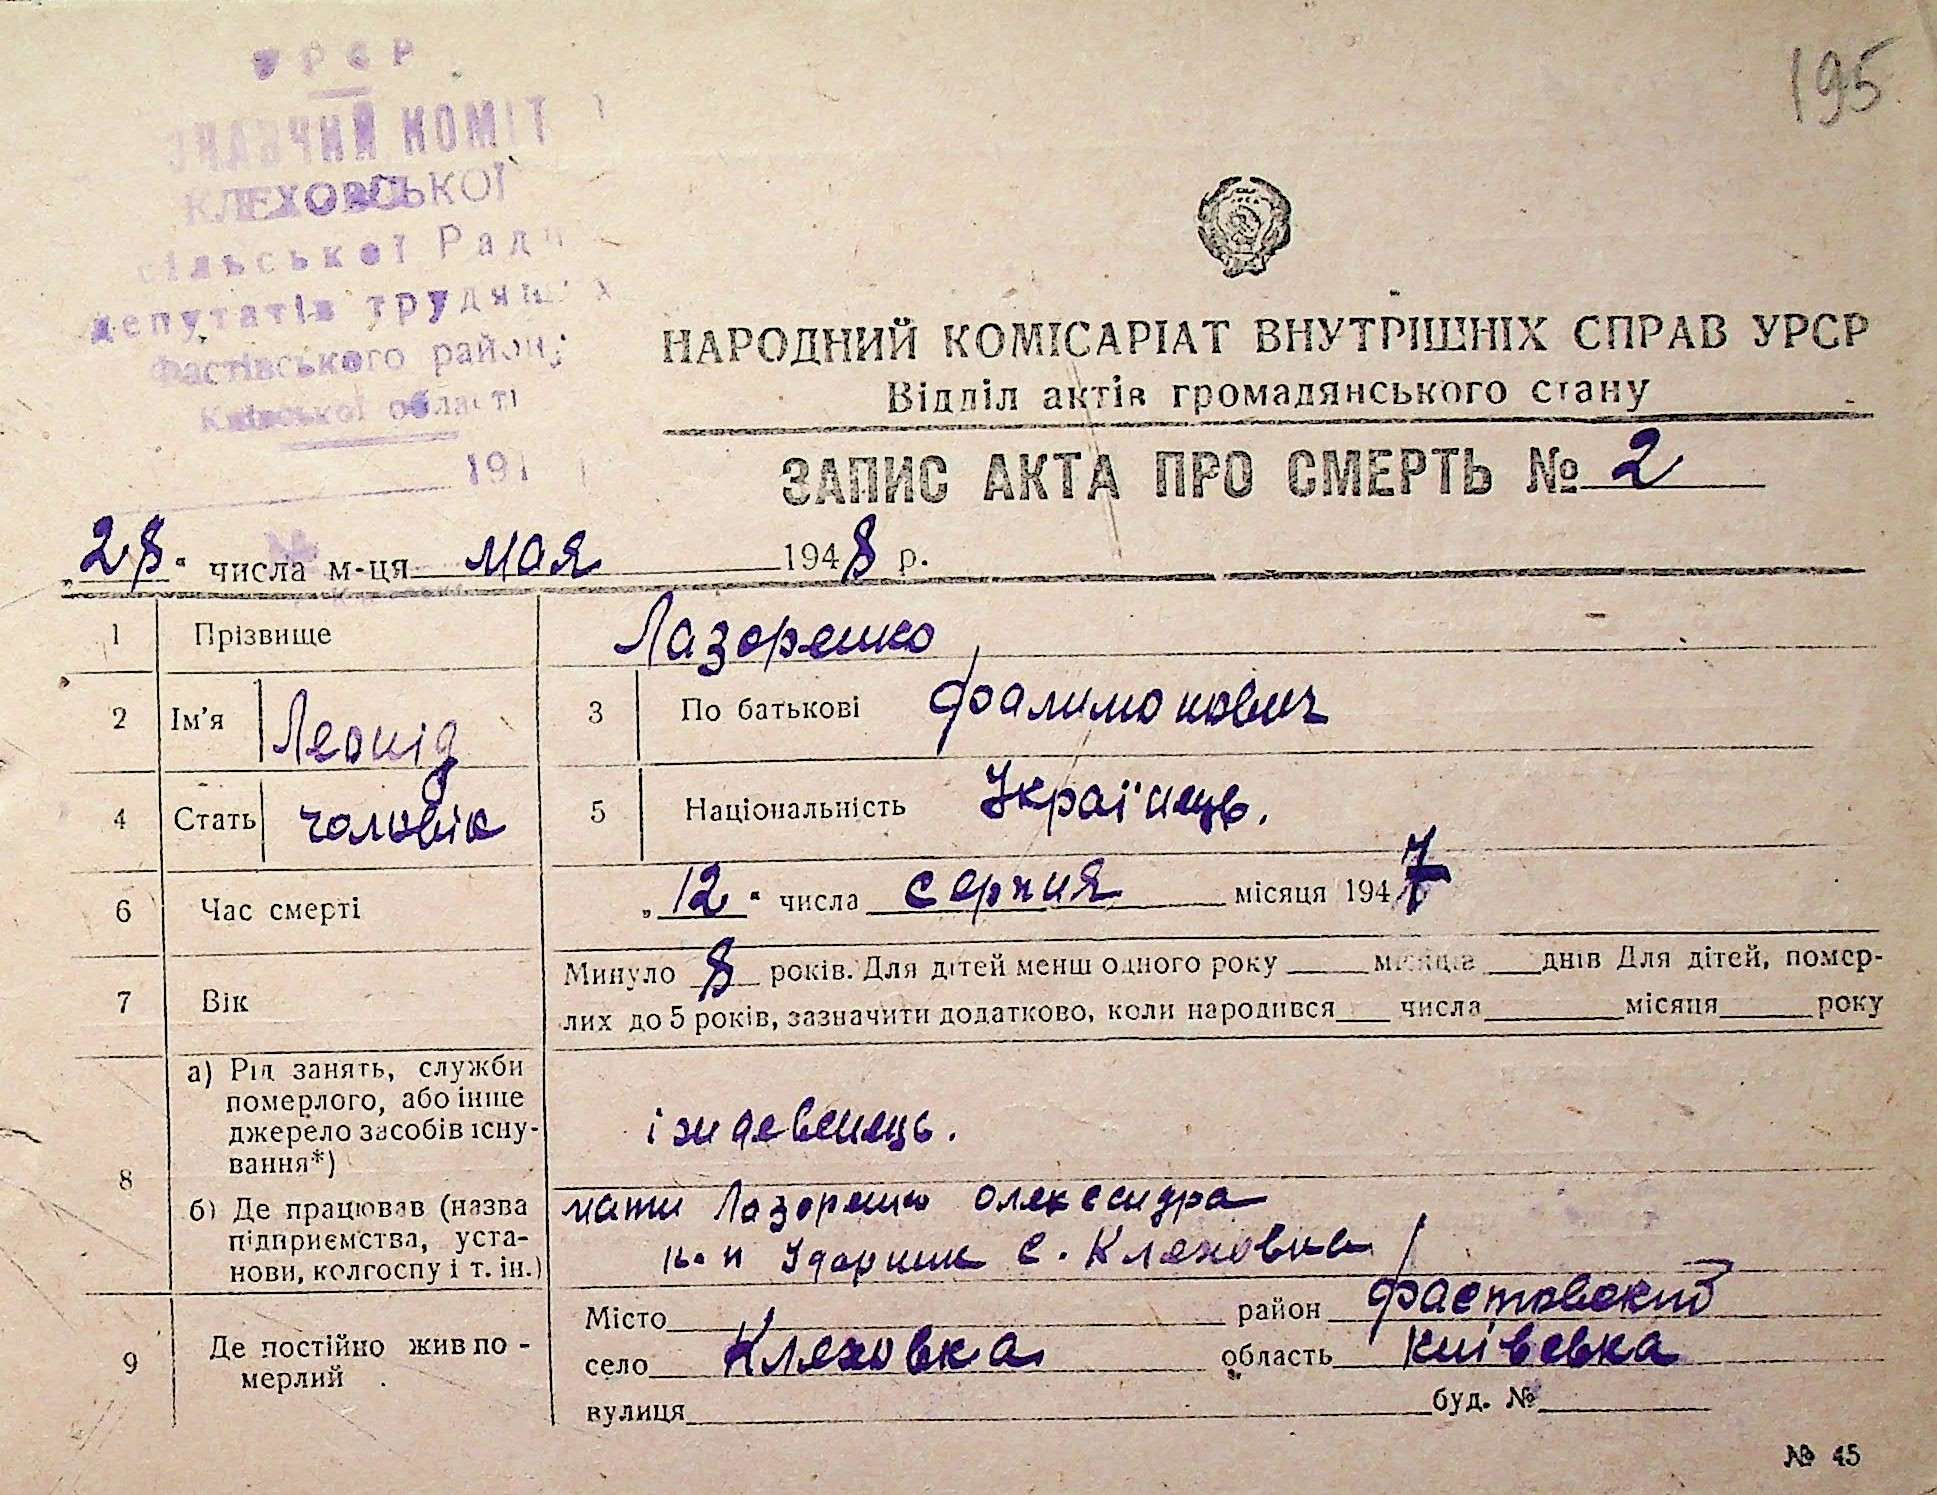 195
УРСР
КОМІТ
КЛЕХОВСЬКОЇ
сільської Ради
депутатів трудящих
Фастівського району
Київської області
191
НАРОДНИЙ КОМІСАРІАТ ВНУТРІШНІХ СПРАВ УРСР
Відділ актів громадянського стану
ЗАПИС АКТА ПРО СМЕРТЬ № 2
„28" числа м-ця мая 1948 р.
1 Прізвище Лазоренко
2 Ім'я Леонід 3 По батькові Фалимонович
4 Стать чоловік 5 Національність Українець.
6 Час смерті „12" числа серпня місяця 1947
7 Вік Минуло 8 років. Для дітей менш одного року місяців днів Для дітей, помер-
лих до 5 років, зазначити додатково, коли народився числа місяця року
8 а) Рід занять, служби
померлого, або інше
джерело засобів існу-
вання*)
іждевенець.
б) Де працював (назва
підприємства, уста-
нови, колгоспу і т. ін.)
мати Лазоренко Олександра
к-п Ударник с. Клеховка
9 Де постійно жив по-
мерлий
Місто район Фастовский
село Клеховка область Київська
вулиця буд. №
№ 45